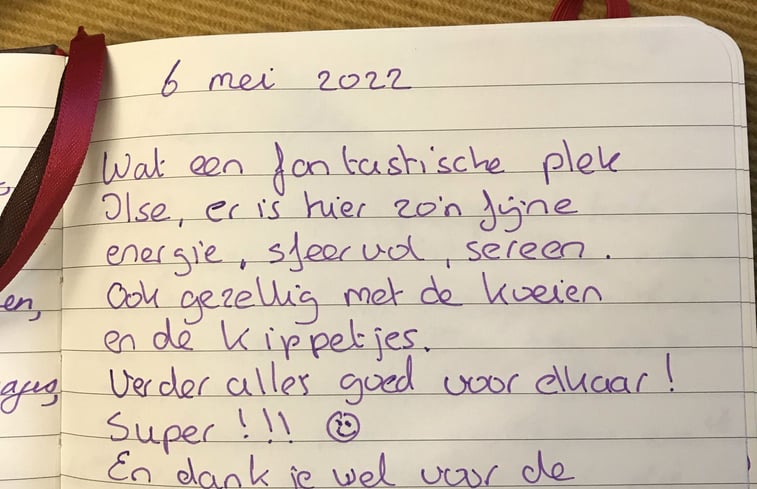 6 mei 2022
Wat een fantastische plek
Ilse, er is hier zo'n fijne
energie, sfeervol, sereen.
Ook gezellig met de koeien
en de kippetjes.
Verder alles goed voor elkaar!
Super!!! ☺
En dank je wel voor de
en,